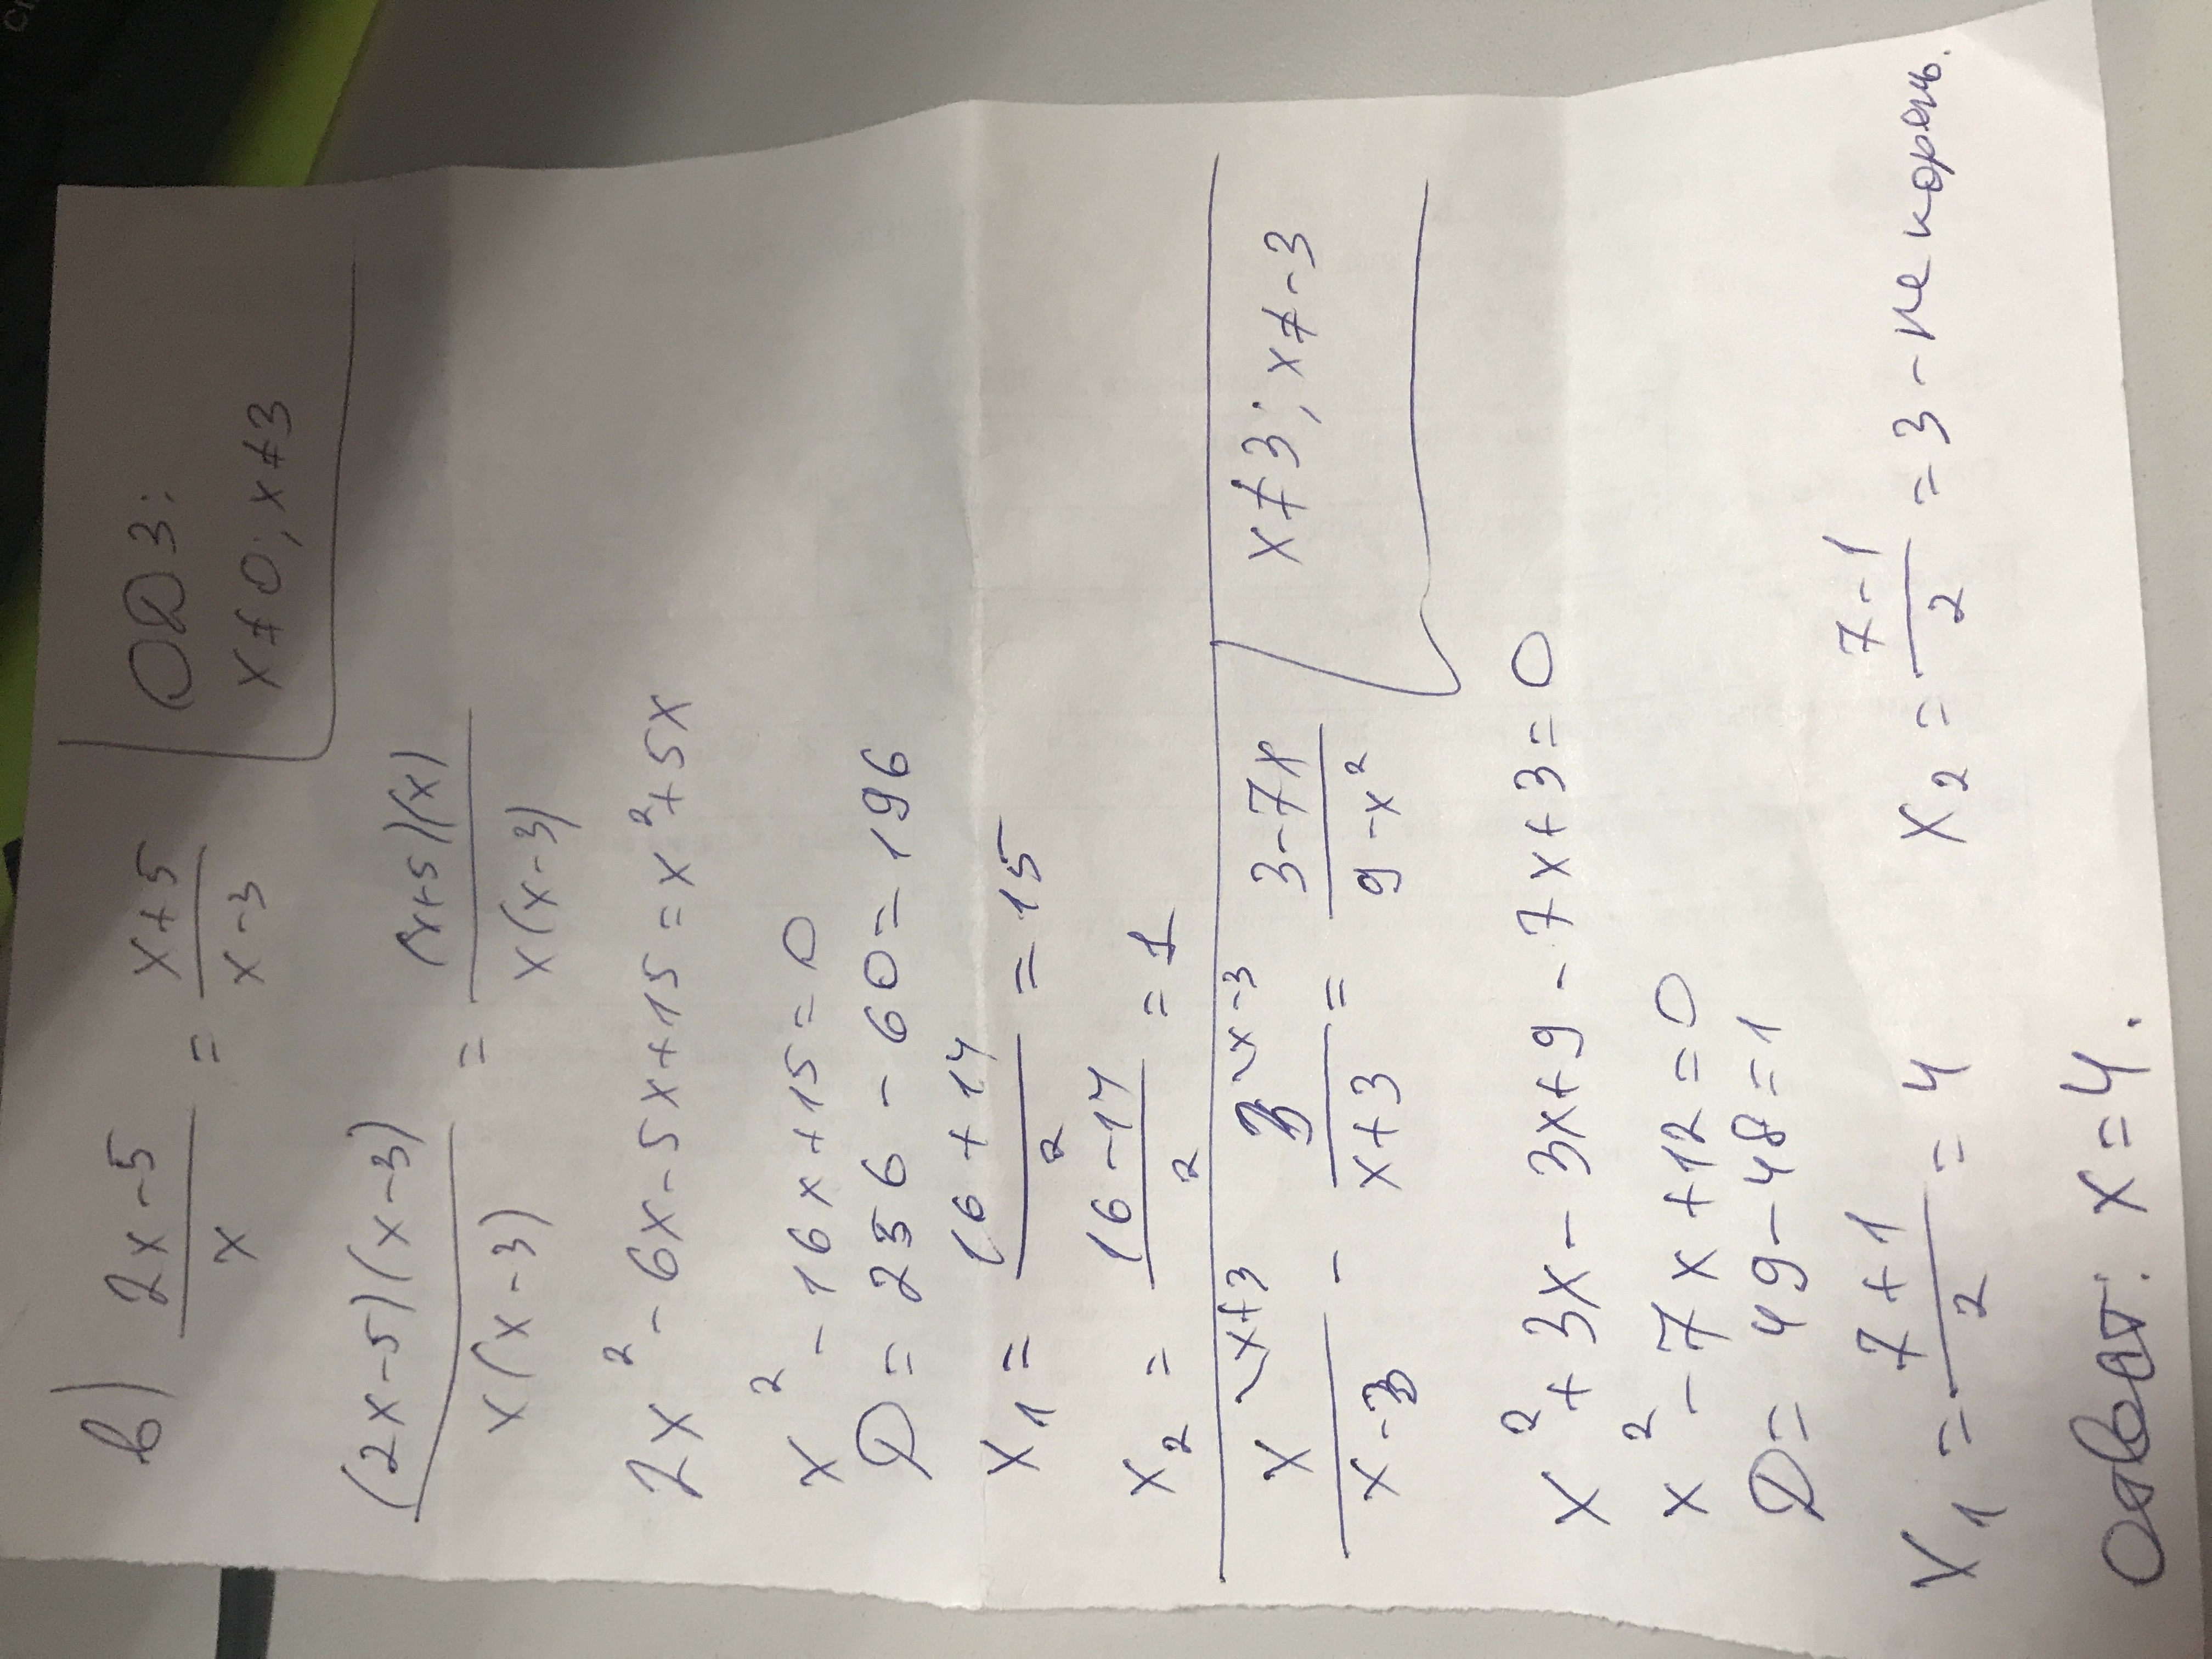 в) (2x-5)/x = (x+5)/(x-3) ОДЗ:
x≠0; x≠3
((2x-5)(x-3))/(x(x-3)) = ((x+5)(x))/(x(x-3))
2x² - 6x - 5x + 15 = x² + 5x
x² - 16x + 15 = 0
D = 256 - 60 = 196
x₁ = (16+14)/2 = 15
x₂ = (16-14)/2 = 1
x/(x-3) \x+3 - 3/(x+3) \x-3 = (3-7x)/(9-x²) x≠3; x≠-3
x² + 3x - 3x + 9 - 7x + 3 = 0
x² - 7x + 12 = 0
D = 49 - 48 = 1
x₁ = (7+1)/2 = 4 x₂ = (7-1)/2 = 3 - не корень.
Ответ: x = 4.